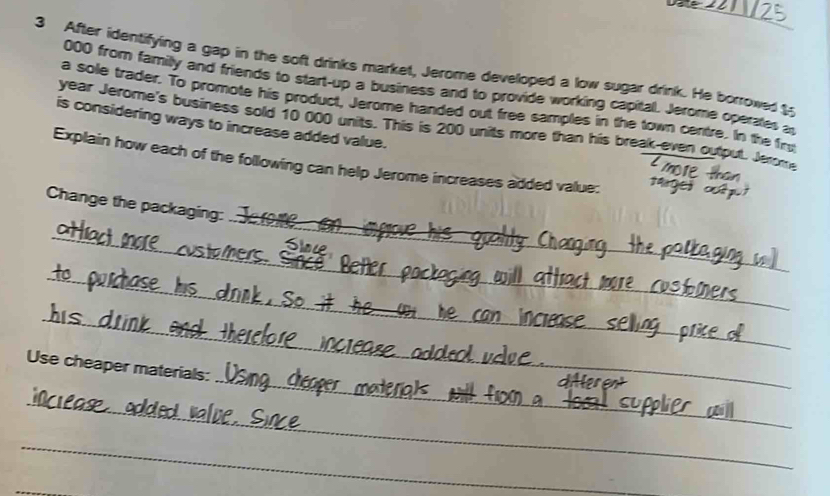 Date 22/1/25
3 After identifying a gap in the soft drinks market, Jerome developed a low sugar drink. He borrowed $5
000 from family and friends to start-up a business and to provide working capital. Jerome operates as
a sole trader. To promote his product, Jerome handed out free samples in the town centre. In the first
year Jerome's business sold 10 000 units. This is 200 units more than his break-even output. Jerome
is considering ways to increase added value.
more than
target output
Explain how each of the following can help Jerome increases added value:
Change the packaging: Jerome can improve his quality Changing the packaging will
attract more customers. Since Since Better packaging will attract more customers
to purchase his drink, So it he can he can increase selling price of
his drink and therefore increase added value.
Use cheaper materials: Using cheaper materials will from a local different supplier will
increase added value. Since